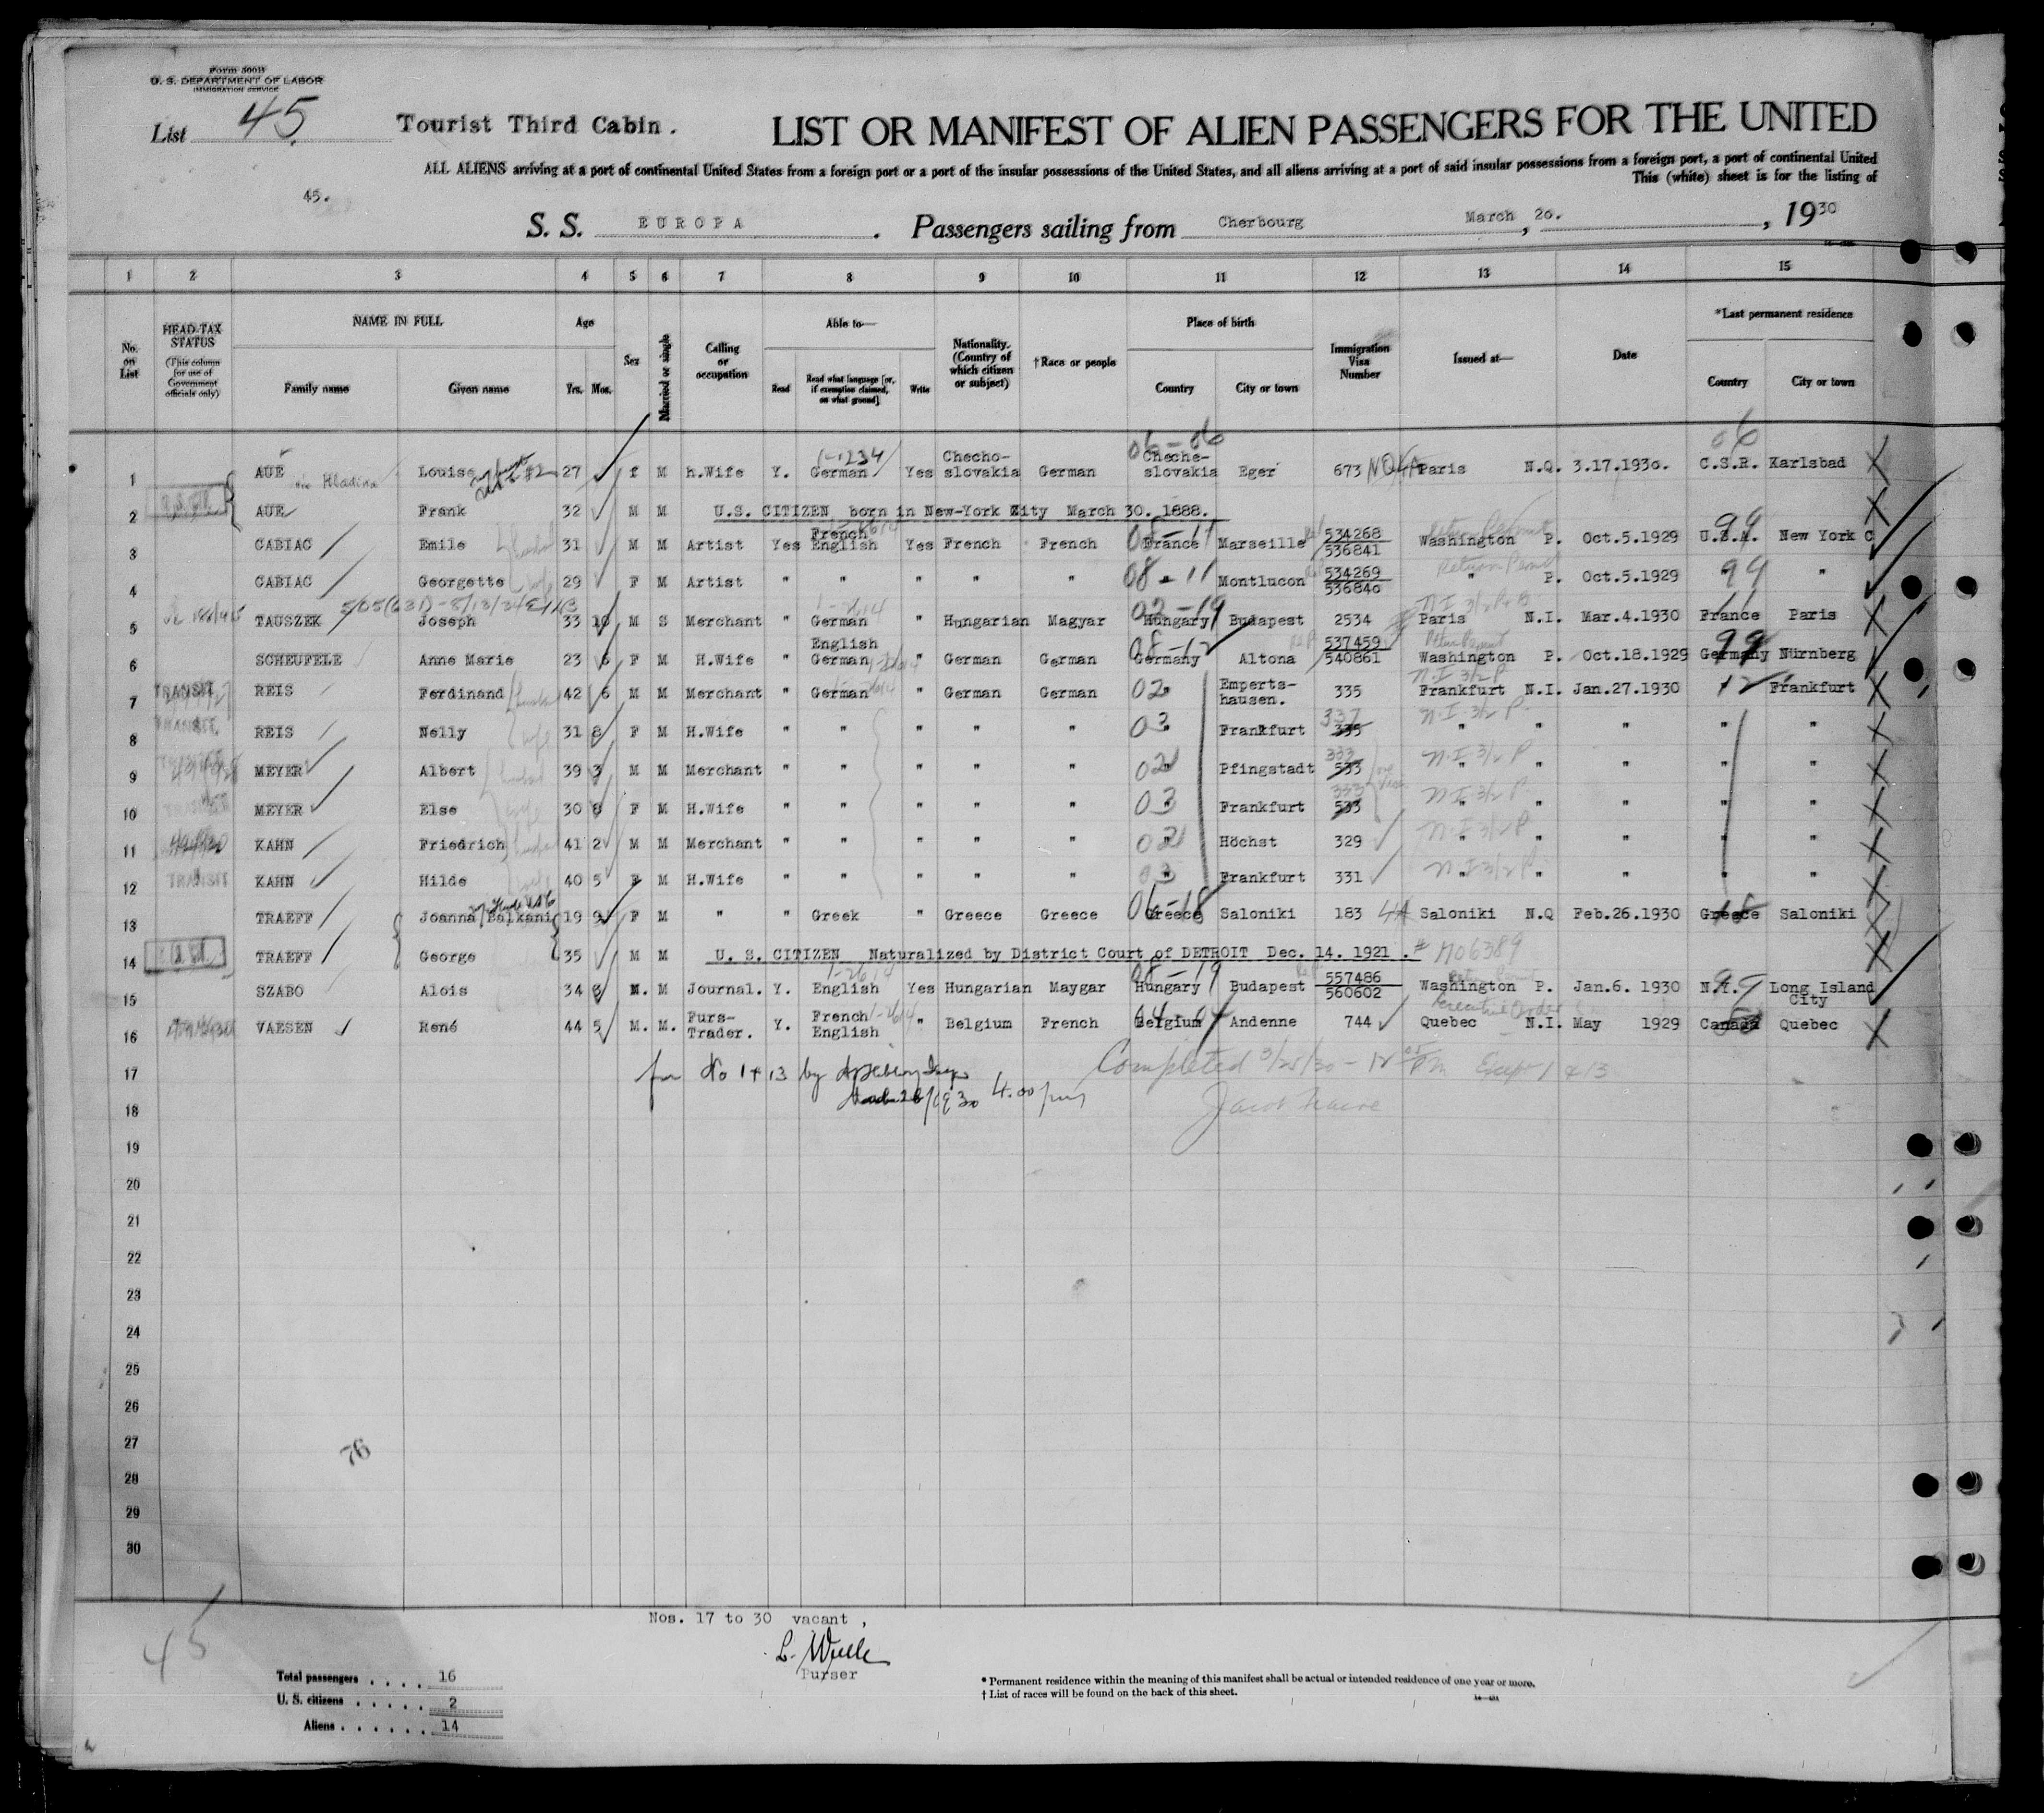 Form 500B
U. S. DEPARTMENT OF LABOR
IMMIGRATION SERVICE
List 45. Tourist Third Cabin. LIST OR MANIFEST OF ALIEN PASSENGERS FOR THE UNITED
ALL ALIENS arriving at a port of continental United States from a foreign port or a port of the insular possessions of the United States, and all aliens arriving at a port of said insular possessions from a foreign port, a port of continental United
This (white) sheet is for the listing of
45.
S. S. EUROPA. Passengers sailing from Cherbourg March, 20. , 1930
1 2 3 4 5 6 7 8 9 10 11 12 13 14 15
No. on List
HEAD-TAX STATUS
(This column for use of Government officials only)
NAME IN FULL
Family name Given name
Age
Yrs. Mos.
Sex
Married or single
Calling or occupation
Able to—
Read
Read what language [or, if exemption claimed, on what ground]
Write
Nationality. (Country of which citizen or subject)
†Race or people
Place of birth
Country City or town
Immigration Visa Number
Issued at—
Date
*Last permanent residence
Country City or town
06-06 06
1 AUE Louise 27 f M h.Wife Y. German Yes Checho-slovakia German Cheche-slovakia Eger 673 NQ Paris N.Q. 3.17.1930. C.S.R. Karlsbad
2 AUE Frank 32 M M U.S. CITIZEN born in New-York City March 30. 1888.
3 CABIAC Emile 31 M M Artist Yes French English Yes French French France Marseille 534268 536841 Washington P. Oct.5.1929 U.S.A. New York C
4 CABIAC Georgette 29 F M Artist " " " " " 08-11 Montlucon 534269 536840 " P. Oct.5.1929 " 99 "
5 TAUSZEK Joseph 33 10 M S Merchant " German " Hungarian Magyar Hungary Budapest 2534 Paris N.I. Mar.4.1930 France Paris
6 SCHEUFELE Anne Marie 23 6 F M H.Wife " English German " German German Germany Altona 537459 540861 Washington P. Oct.18.1929 Germany Nürnberg
7 TRANSIT REIS Ferdinand 42 6 M M Merchant " German " German German 02 Emperts-hausen. 335 Frankfurt N.I. Jan.27.1930 12 Frankfurt
8 TRANSIT REIS Nelly 31 8 F M H.Wife " " " " " 03 Frankfurt 337 335 " " " " "
9 MEYER Albert 39 3 M M Merchant " " " " " 02 Pfingstadt 333 533 " " " " "
10 MEYER Else 30 8 F M H.Wife " " " " " 03 Frankfurt 333 533 " " " " "
11 KAHN Friedrich 41 2 M M Merchant " " " " " 02 Höchst 329 " " " " "
12 TRANSIT KAHN Hilde 40 5 F M H.Wife " " " " " 03 Frankfurt 331 " " " " "
13 TRAEFF Joanna Balkani 19 9 F M " " Greek " Greece Greece Greece Saloniki 183 Saloniki N.Q Feb.26.1930 Greece Saloniki
14 TRAEFF George 35 M M U. S. CITIZEN Naturalized by District Court of DETROIT Dec. 14. 1921 . # 1106389
15 SZABO Alois 34 8 M. M Journal. Y. English Yes Hungarian Maygar Hungary Budapest 557486 560602 Washington P. Jan.6. 1930 N.Y. Long Island City
16 VAESEN René 44 5 M. M. Furs-Trader. Y. French English " Belgium French Belgium Andenne 744 Quebec N.I. May 1929 Canada Quebec
17 for No 1 + 13 by Completed 3/25/30 - 12 05 PM Except 1 & 13
18 4.00 pm
19
20
21
22
23
24
25
26
27
28
29
30
76
Nos. 17 to 30 vacant ,
45
Purser
Total passengers . . . . 16
U. S. citizens . . . . . 2
Aliens . . . . . . 14
* Permanent residence within the meaning of this manifest shall be actual or intended residence of one year or more.
† List of races will be found on the back of this sheet.